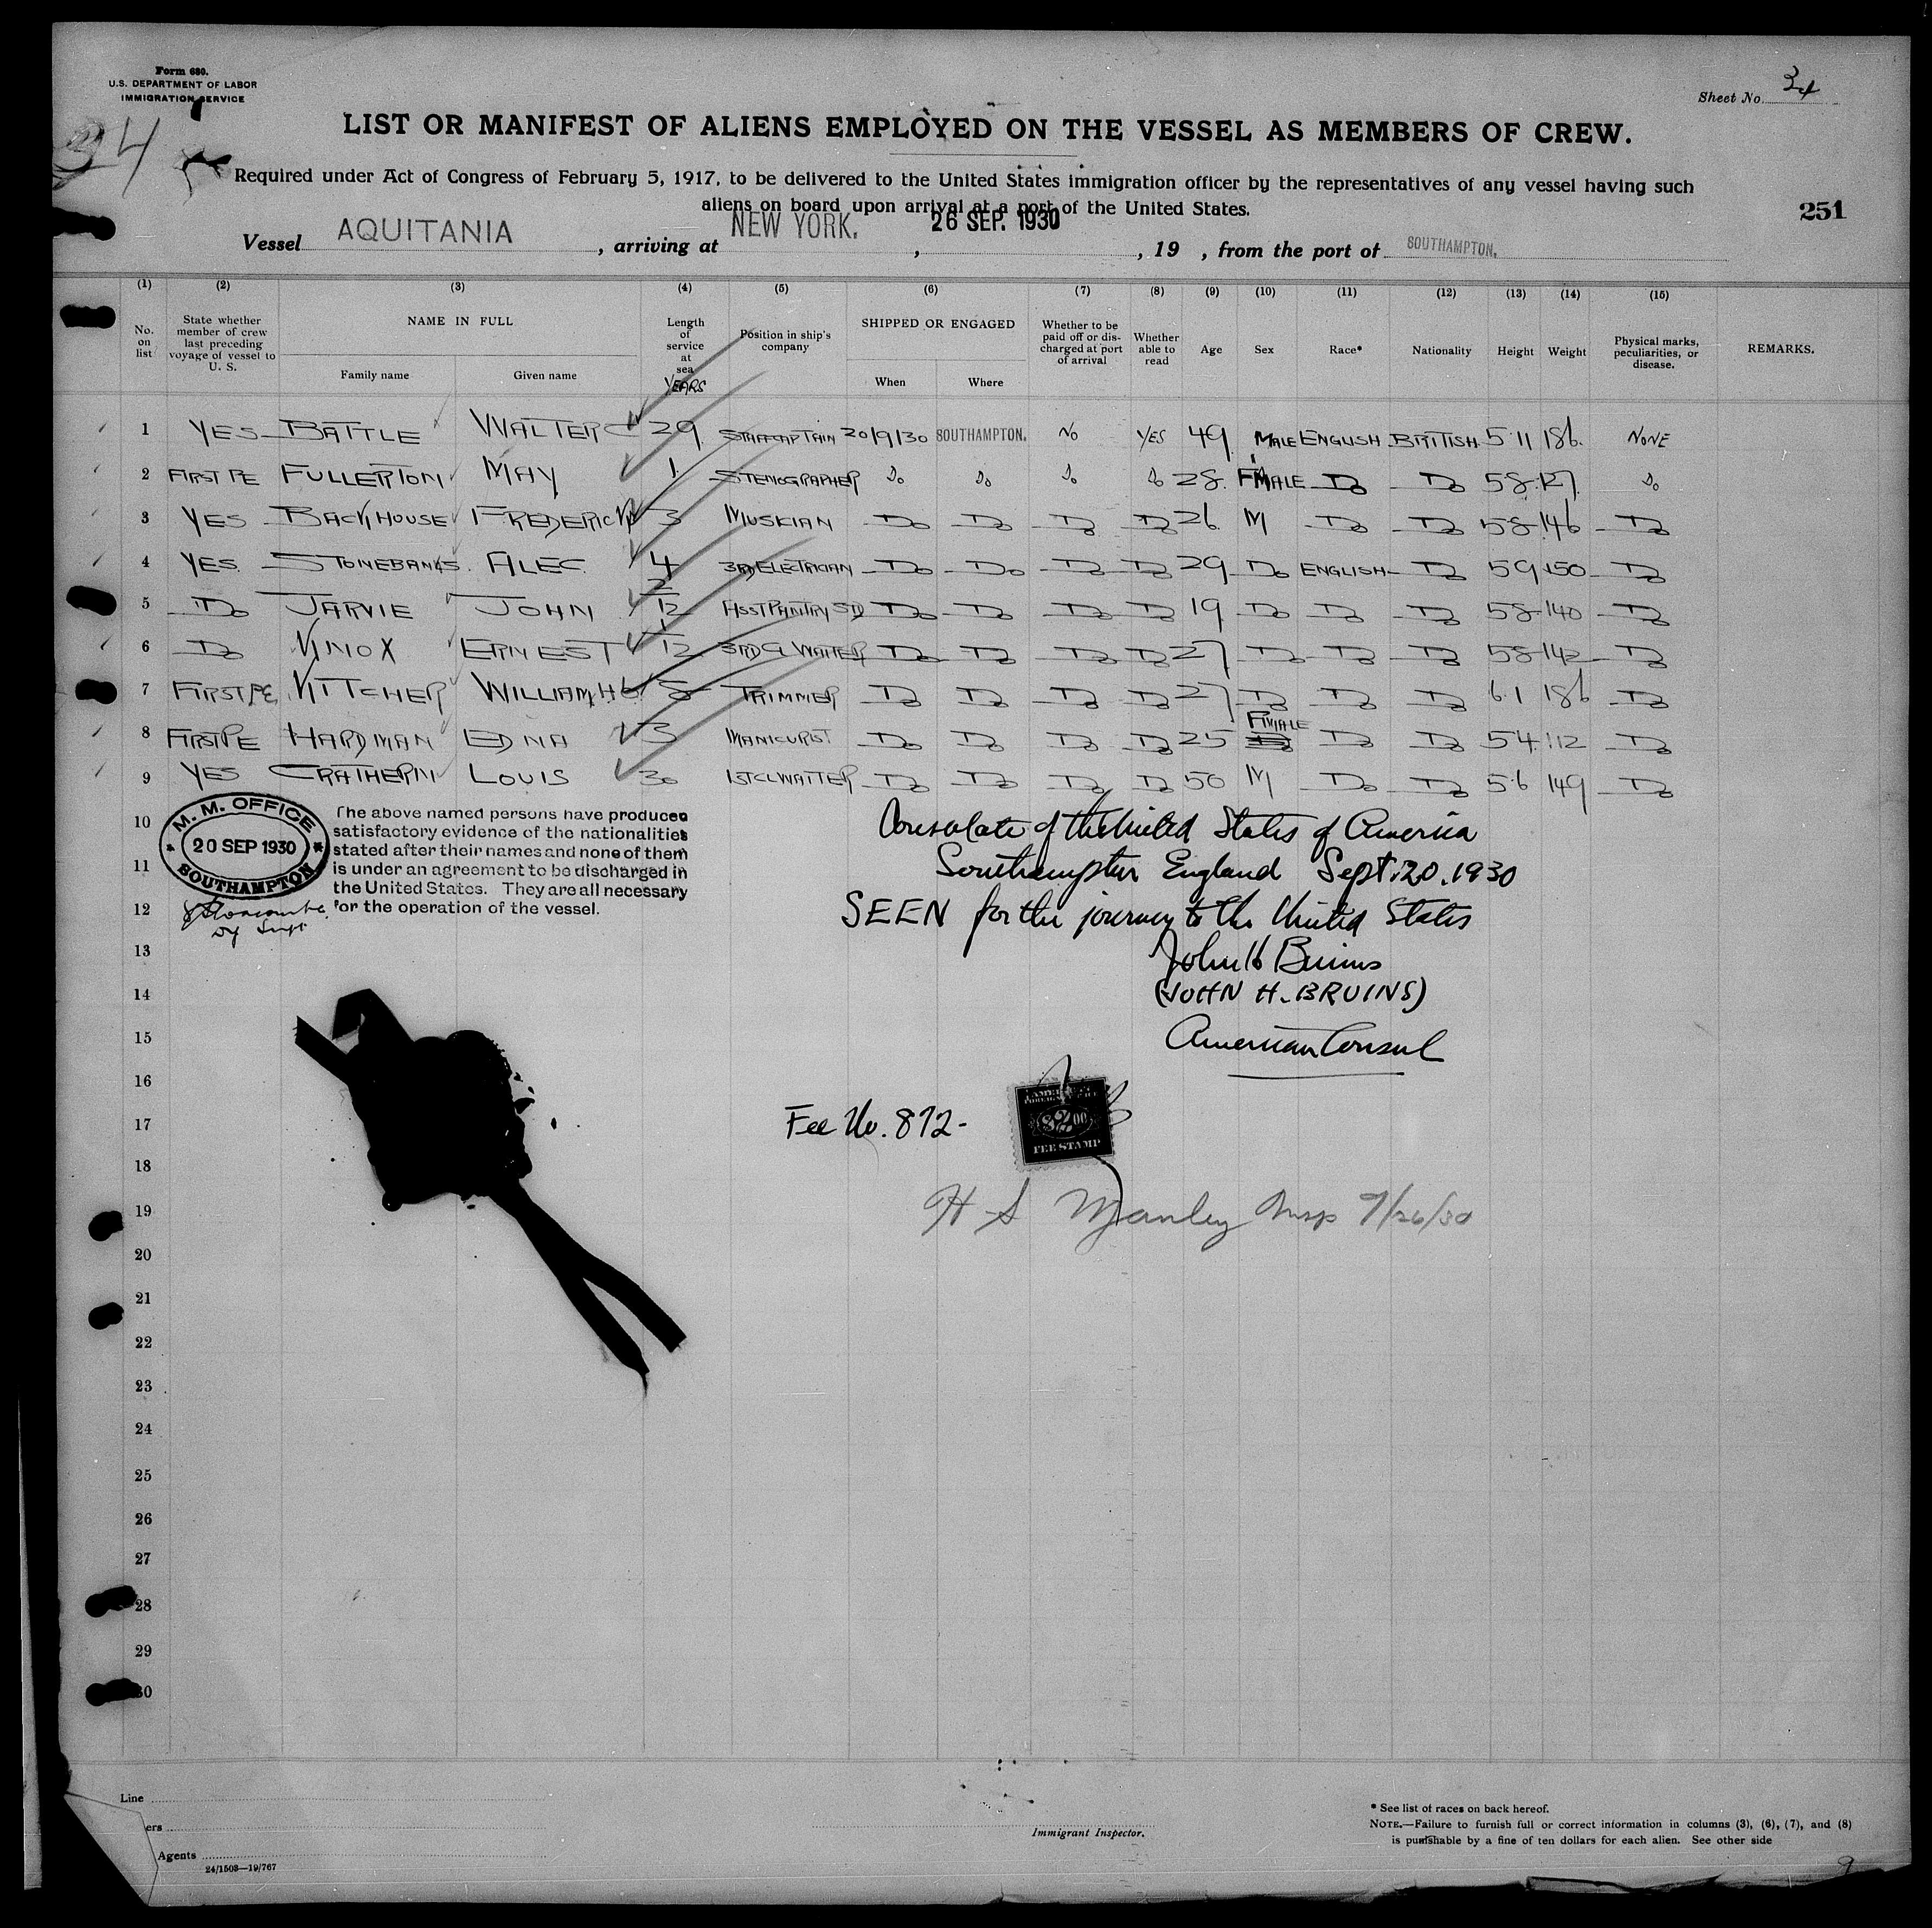 Form 680.
U.S. DEPARTMENT OF LABOR
IMMIGRATION SERVICE
Sheet No. 34
34
LIST OR MANIFEST OF ALIENS EMPLOYED ON THE VESSEL AS MEMBERS OF CREW.
Required under Act of Congress of February 5, 1917, to be delivered to the United States immigration officer by the representatives of any vessel having such
aliens on board upon arrival at a port of the United States.
251
Vessel AQUITANIA, arriving at NEW YORK., 26 SEP. 1930, 19 , from the port of SOUTHAMPTON.
(1) (2) (3) (4) (5) (6) (7) (8) (9) (10) (11) (12) (13) (14) (15)
No. on list State whether member of crew last preceding voyage of vessel to U. S. NAME IN FULL Family name Given name Length of service at sea YEARS Position in ship's company SHIPPED OR ENGAGED When Where Whether to be paid off or discharged at port of arrival Whether able to read Age Sex Race* Nationality Height Weight Physical marks, peculiarities, or disease. REMARKS.
1 YES BATTLE WALTER C 29 STAFF CAPTAIN 20/9/30 SOUTHAMPTON. NO YES 49 MALE ENGLISH BRITISH 5·11 186 NONE
2 FIRST PE FULLERTON MAY 1 STENOGRAPHER Do Do Do Do 28 FMALE Do Do 58 127 Do
3 YES BACKHOUSE FREDERICK 3 MUSICIAN Do Do Do Do 26 M Do Do 58 146 Do
4 YES STONEBANKS ALEC 4 3RD ELECTRICIAN Do Do Do Do 29 Do ENGLISH Do 59 150 Do
5 Do JARVIE JOHN 2/12 ASST PANTRY STD Do Do Do Do 19 Do Do Do 58 140 Do
6 Do KNOX ERNEST 1/12 3RD CL WAITER Do Do Do Do 27 Do Do Do 58 142 Do
7 FIRST PE KITCHER WILLIAM H G 8 TRIMMER Do Do Do Do 27 Do Do Do 6·1 186 Do
8 FIRST PE HARDMAN EDNA 3 MANICURIST Do Do Do Do 25 FMALE Do Do 54 112 Do
9 YES CRATHERN LOUIS 30 1ST CL WAITER Do Do Do Do 50 M Do Do 5·6 149 Do
10
11
12
13
14
15
16
17
18
19
20
21
22
23
24
25
26
27
28
29
30
M. M. OFFICE
20 SEP 1930
SOUTHAMPTON
The above named persons have produced
satisfactory evidence of the nationalities
stated after their names and none of them
is under an agreement to be discharged in
the United States. They are all necessary
for the operation of the vessel.
Dy Supt
Consulate of the United States of America
Southampton England Sept. 20. 1930
SEEN for the journey to the United States
John H Bruins
(JOHN H. BRUINS)
American Consul
Fee No. 872-
$2.00
FEE STAMP
H S Manley Insp 9/26/30
Line
ers
Agents
24/1503—19/767
Immigrant Inspector.
* See list of races on back hereof.
NOTE.—Failure to furnish full or correct information in columns (3), (6), (7), and (8)
is punishable by a fine of ten dollars for each alien. See other side
9